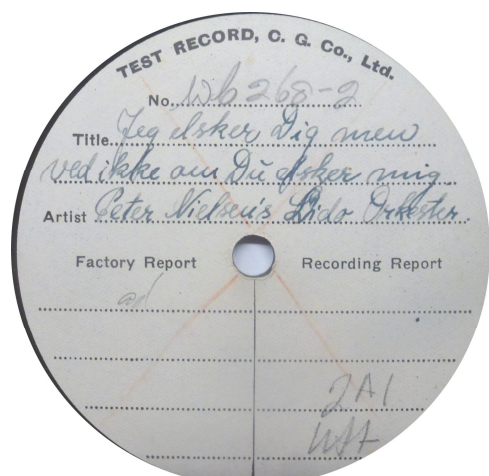 TEST RECORD, C. G. Co., Ltd.
No. Wb 268-2
Title Jeg elsker Dig men
ved ikke om Du elsker mig
Artist Peter Nielsen's Lido Orkester.
Factory Report Recording Report
2A1